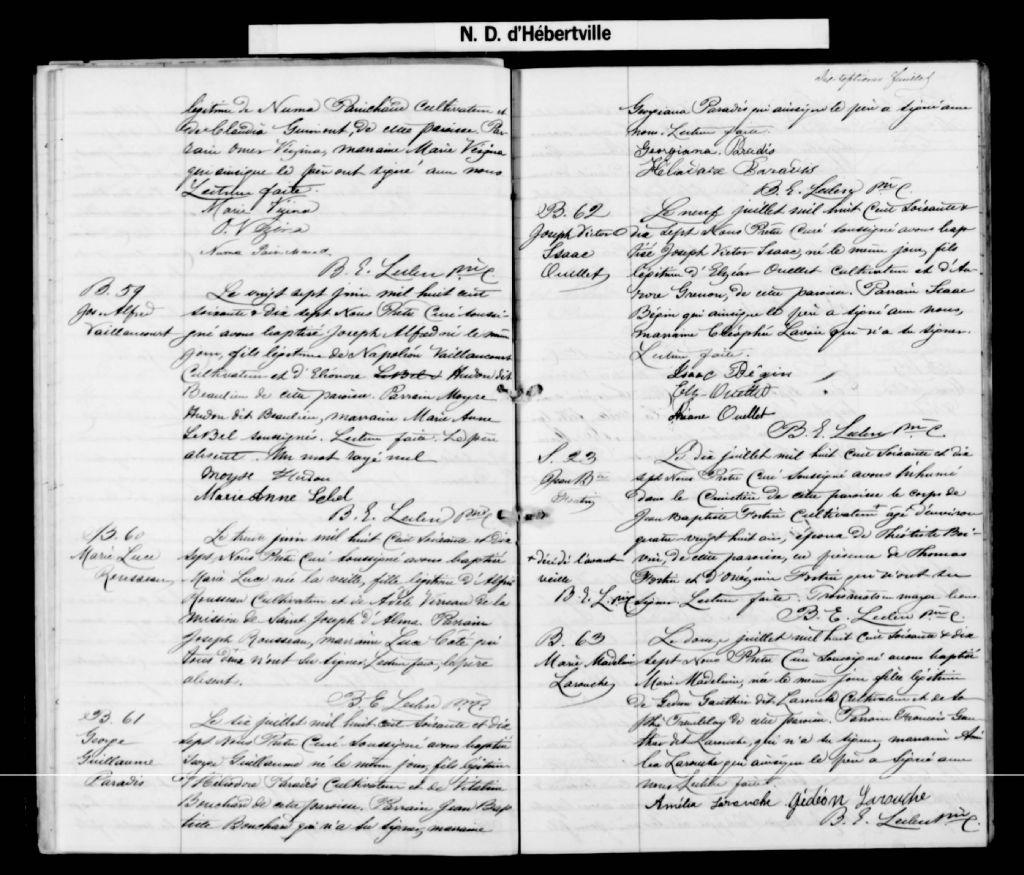 N. D. d'Hébertville
légitime de Numa Painchaud Cultivateur et
de Claudia Guimont, de cette paroisse Par-
rain Omer Vézina, marraine Marie Vézina
qui ainsi que le père ont signé avec nous
Lecture faite.
Marie Vézina
O. Vézina
Numa Painchaud
B. E. Leclerc Ptre C.
B. 59
Jos. Alfred
Vaillancourt
Le vingt sept juin mil huit cent
soixante & dix sept Nous Prêtre Curé soussi-
gné avons baptisé Joseph Alfred né le même
jour, fils légitime de Napoléon Vaillancourt
Cultivateur et d'Eléonore LeBel & Hudon dit
Beaulieu de cette paroisse. Parrain Moyse
Hudon dit Beaulieu, marraine Marie Anne
LeBel soussignés. Lecture faite. Le père
absent. Un mot rayé nul
Moyse Hudon
Marie Anne Lebel
B. E. Leclerc Ptre C.
B. 60
Marie Luce
Rousseau
Le trente juin mil huit cent soixante et dix
sept, Nous Prêtre Curé soussigné avons baptisé
Marie Luce née la veille, fille légitime d'Alfred
Rousseau Cultivateur et de Adèle de la
mission de Saint Joseph d'Alma. Parrain
Joseph Rousseau, marraine Luce Côté qui
tous deux n'ont su signer. Lecture faite, le père
absent.
B. E. Leclerc Ptre C.
B. 61
George
Guillaume
Paradis
Le six juillet mil huit cent soixante et dix
sept Nous Prêtre Curé soussigné avons baptisé
George Guillaume né le même jour, fils légitime
d'Héliodore Paradis Cultivateur et de Vitaline
Bouchard de cette paroisse. Parrain Jean Bap-
tiste Bouchard qui n'a su signer, marraine
feuillet
Georgiana Paradis qui ainsi que le père a signé avec
nous. Lecture faite.
Georgiana Paradis
Héliodore Paradis
B. E. Leclerc Ptre C.
B. 62
Joseph Victor
Isaac
Ouellet
Le neuf juillet mil huit cent soixante &
dix sept Nous Prêtre Curé soussigné avons bap-
tisé Joseph Victor Isaac, né le même jour, fils
légitime d'Elzéar Ouellet Cultivateur et d'Au-
rore Grenon, de cette paroisse. Parrain Isaac
Bégin qui ainsi que le père a signé avec nous,
marraine Lavoie qui n'a su signer.
Lecture faite.
Isaac Bégin
Elz. Ouellet
Ariane Ouellet
B. E. Leclerc Ptre C.
S. 23
Jean Bte
Fortin
Le dix juillet mil huit cent soixante et dix
sept Nous Prêtre Curé soussigné avons inhumé
dans le Cimetière de cette paroisse le corps de
Jean Baptiste Fortin Cultivateur + agé d'environ
quatre-vingt huit ans, époux de Théotiste Boi-
vin, de cette paroisse, en présence de Thomas
Fortin et d'Onésime Fortin qui n'ont su
signer Lecture faite.
+ décédé l'avant
veille
B. E. L. Ptre C.
B. E. Leclerc Ptre C.
B. 63
Marie Madeleine
Larouche
Le douze juillet mil huit cent soixante & dix
sept Nous Prêtre Curé soussigné avons baptisé
Marie Madeleine, née le même jour fille légitime
de Gédéon Gauthier dit Larouche Cultivateur et de
Tremblay de cette paroisse. Parrain François Gau-
thier dit Larouche, qui n'a su signer, marraine Amé-
lia Larouche qui ainsi que le père a signé avec
nous Lecture faite.
Amélia Larouche Gédéon Larouche
B. E. Leclerc Ptre C.